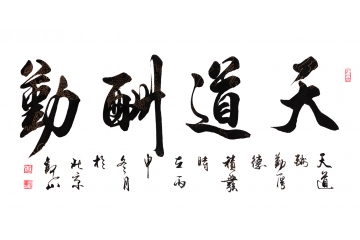 天道酬勤
天道
酬
勤厚
德
積
時
在丙
申
冬月
於
北京